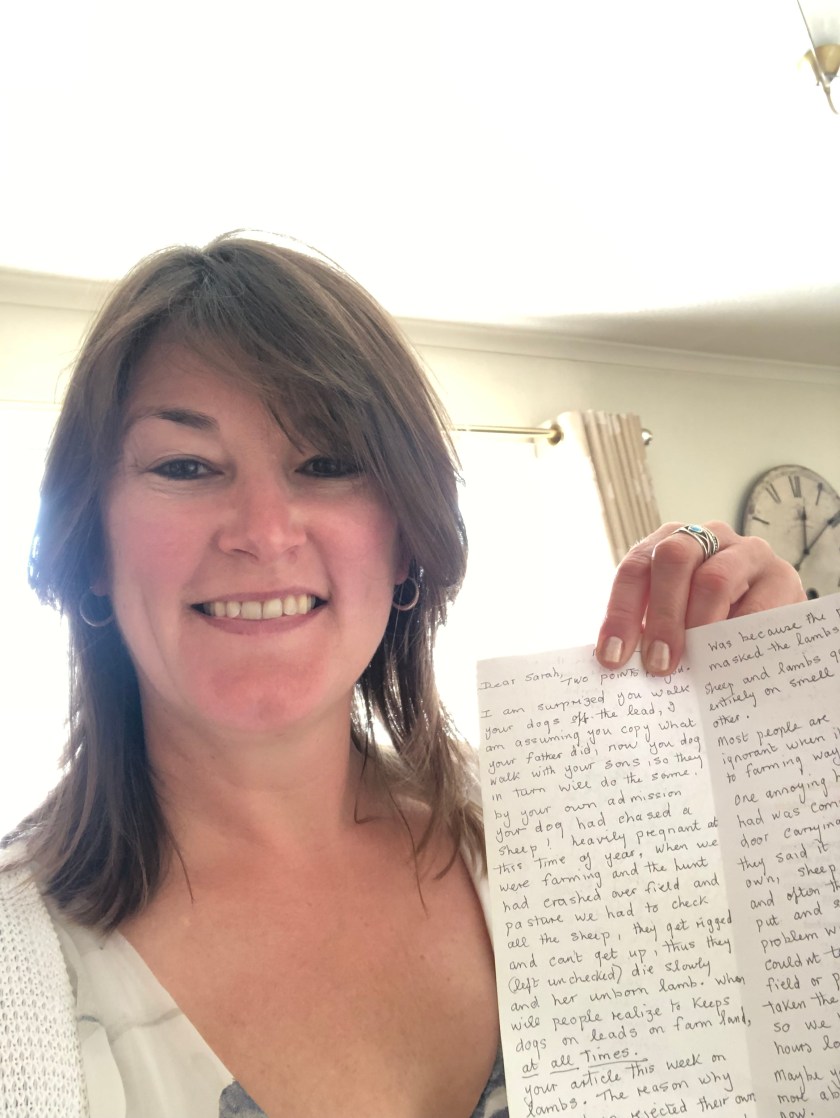 Dear Sarah,
Two points
I am surprized you walk
your dogs off the lead, I
am assuming you copy what
your father did, now you dog
walk with your sons, so they
in turn will do the same.
by your own admission
your dog had chased a
sheep! heavily pregnant at
this time of year, when we
were farming and the hunt
had crashed over field and
pasture we had to check
all the sheep, they get rigged
and cant get up, thus they
(left unchecked) die slowly
and her unborn lamb. When
will people realize to keeps
dogs on leads on farm land,
at all times.
your article this week on
lambs. The reason why
rejected their own
was because the
masked the lambs
sheep and lambs
entirely on smell
other.
Most people are
ignorant when
to farming
one annoying
had was
door carrying
they said it
own, sheep
and often
put and
problem
couldnt
field or
taken the
so we
hours
Maybe
more
now.